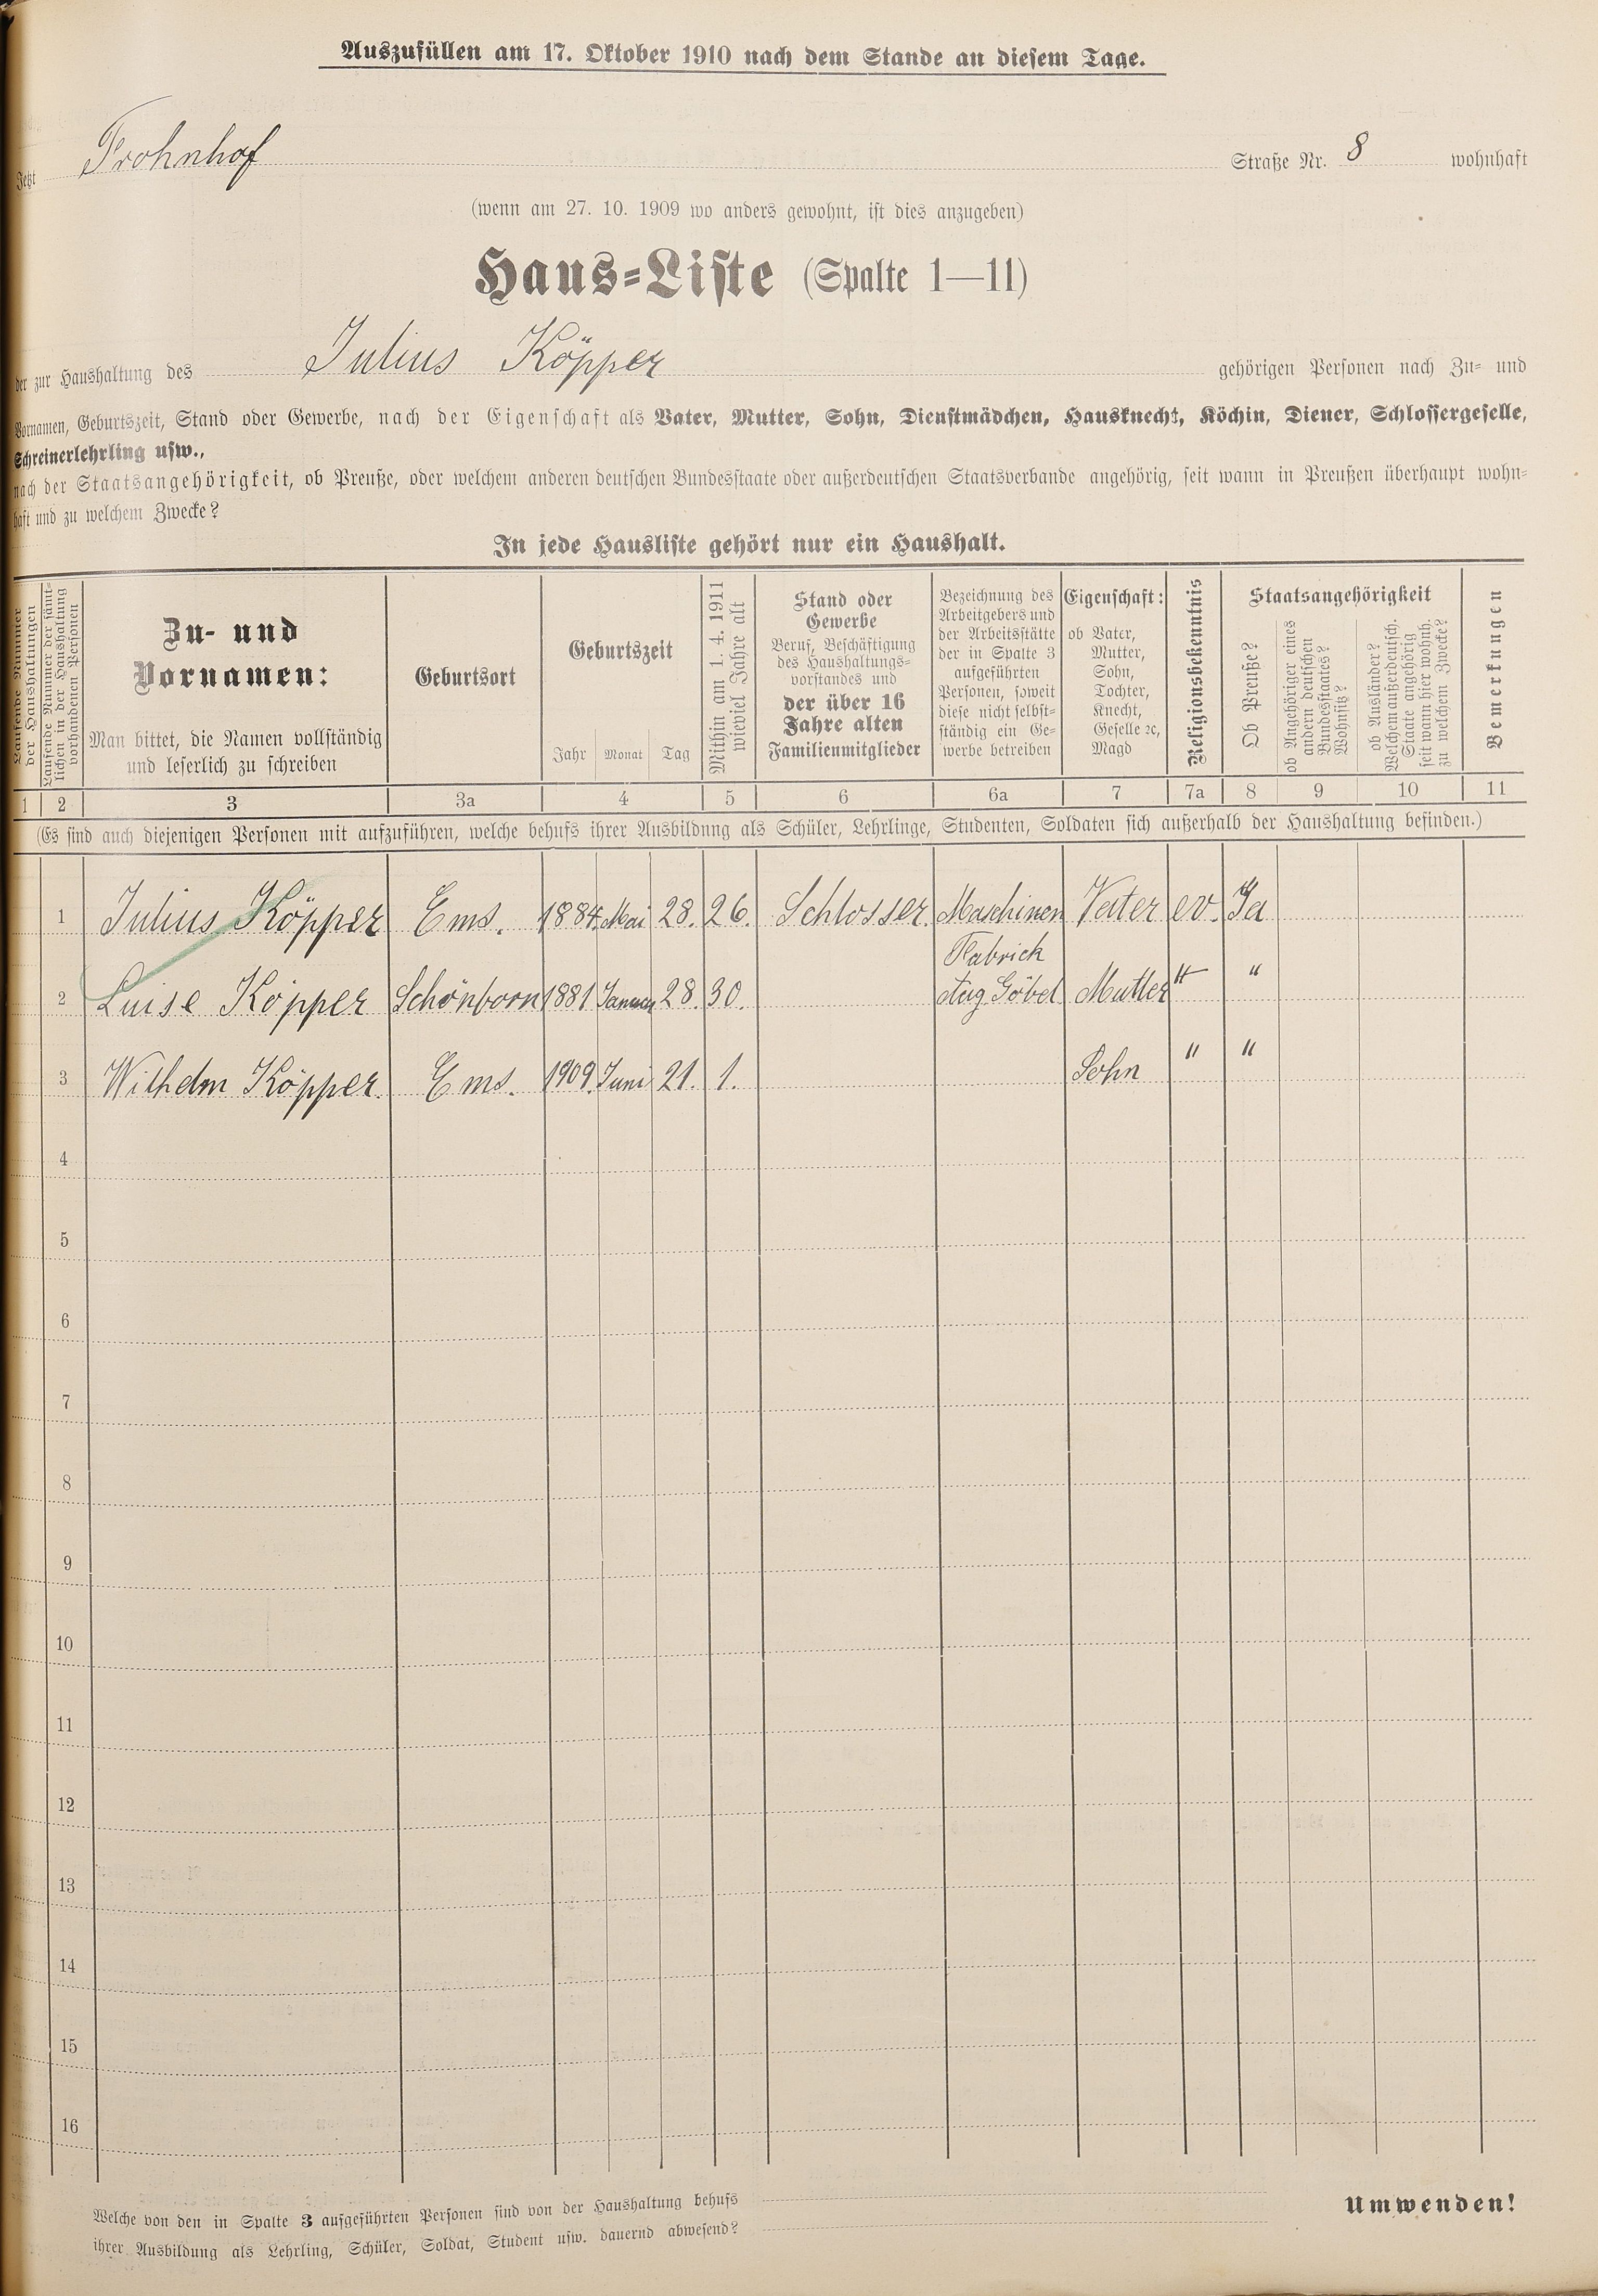 Auszufüllen am 17. Oktober 1910 nach dem Stande an diesem Tage.
Jetzt Frohnhof Straße Nr. 8 wohnhaft
(wenn am 27. 10. 1909 wo anders gewohnt, ist dies anzugeben)
Haus-Liste (Spalte 1—11)
der zur Haushaltung des Julius Köpper gehörigen Personen nach Zu- und
Vornamen, Geburtszeit, Stand oder Gewerbe, nach der Eigenschaft als Vater, Mutter, Sohn, Dienstmädchen, Hausknecht, Köchin, Diener, Schlossergeselle,
Schreinerlehrling usw.,
nach der Staatsangehörigkeit, ob Preuße, oder welchem anderen deutschen Bundesstaate oder außerdeutschen Staatsverbande angehörig, seit wann in Preußen überhaupt wohn-
haft und zu welchem Zwecke?
In jede Hausliste gehört nur ein Haushalt.
Laufende Nummer
der Haushaltungen
Laufende Nummer der sämt-
lichen in der Haushaltung
vorhandenen Personen
Zu- und
Vornamen:
Man bittet, die Namen vollständig
und leserlich zu schreiben
Geburtsort
Geburtszeit
Jahr Monat Tag
Mithin am 1. 4. 1911
wieviel Jahre alt
Stand oder
Gewerbe
Beruf, Beschäftigung
des Haushaltungs-
vorstandes und
der über 16
Jahre alten
Familienmitglieder
Bezeichnung des
Arbeitgebers und
der Arbeitsstätte
der in Spalte 3
aufgeführten
Personen, soweit
diese nicht selbst-
ständig ein Ge-
werbe betreiben
Eigenschaft:
ob Vater,
Mutter,
Sohn,
Tochter,
Knecht,
Geselle ꝛc,
Magd
Religionsbekenntnis
Staatsangehörigkeit
Ob Preuße?
ob Angehöriger eines
andern deutschen
Bundesstaates?
Wohnsitz?
ob Ausländer?
Welchem außerdeutsch.
Staate angehörig
seit wann hier wohnh.
zu welchem Zwecke?
Bemerkungen
1 2 3 3a 4 5 6 6a 7 7a 8 9 10 11
(Es sind auch diejenigen Personen mit aufzuführen, welche behufs ihrer Ausbildung als Schüler, Lehrlinge, Studenten, Soldaten sich außerhalb der Haushaltung befinden.)
1 Julius Köpper Ems. 1884. Mai 28. 26. Schlosser. Maschinen Vater ev. Ja
Fabrick
2 Luise Köpper Schönborn 1881 Januar 28. 30. Aug Göbel Mutter " "
3 Wilhelm Köpper. Ems. 1909. Juni 21. 1. Sohn " "
4
5
6
7
8
9
10
11
12
13
14
15
16
Welche von den in Spalte 3 aufgeführten Personen sind von der Haushaltung behufs
ihrer Ausbildung als Lehrling, Schüler, Soldat, Student usw. dauernd abwesend?
Umwenden!